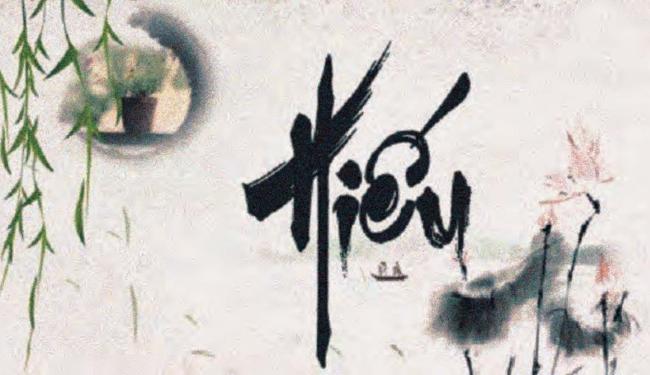 Hiếu